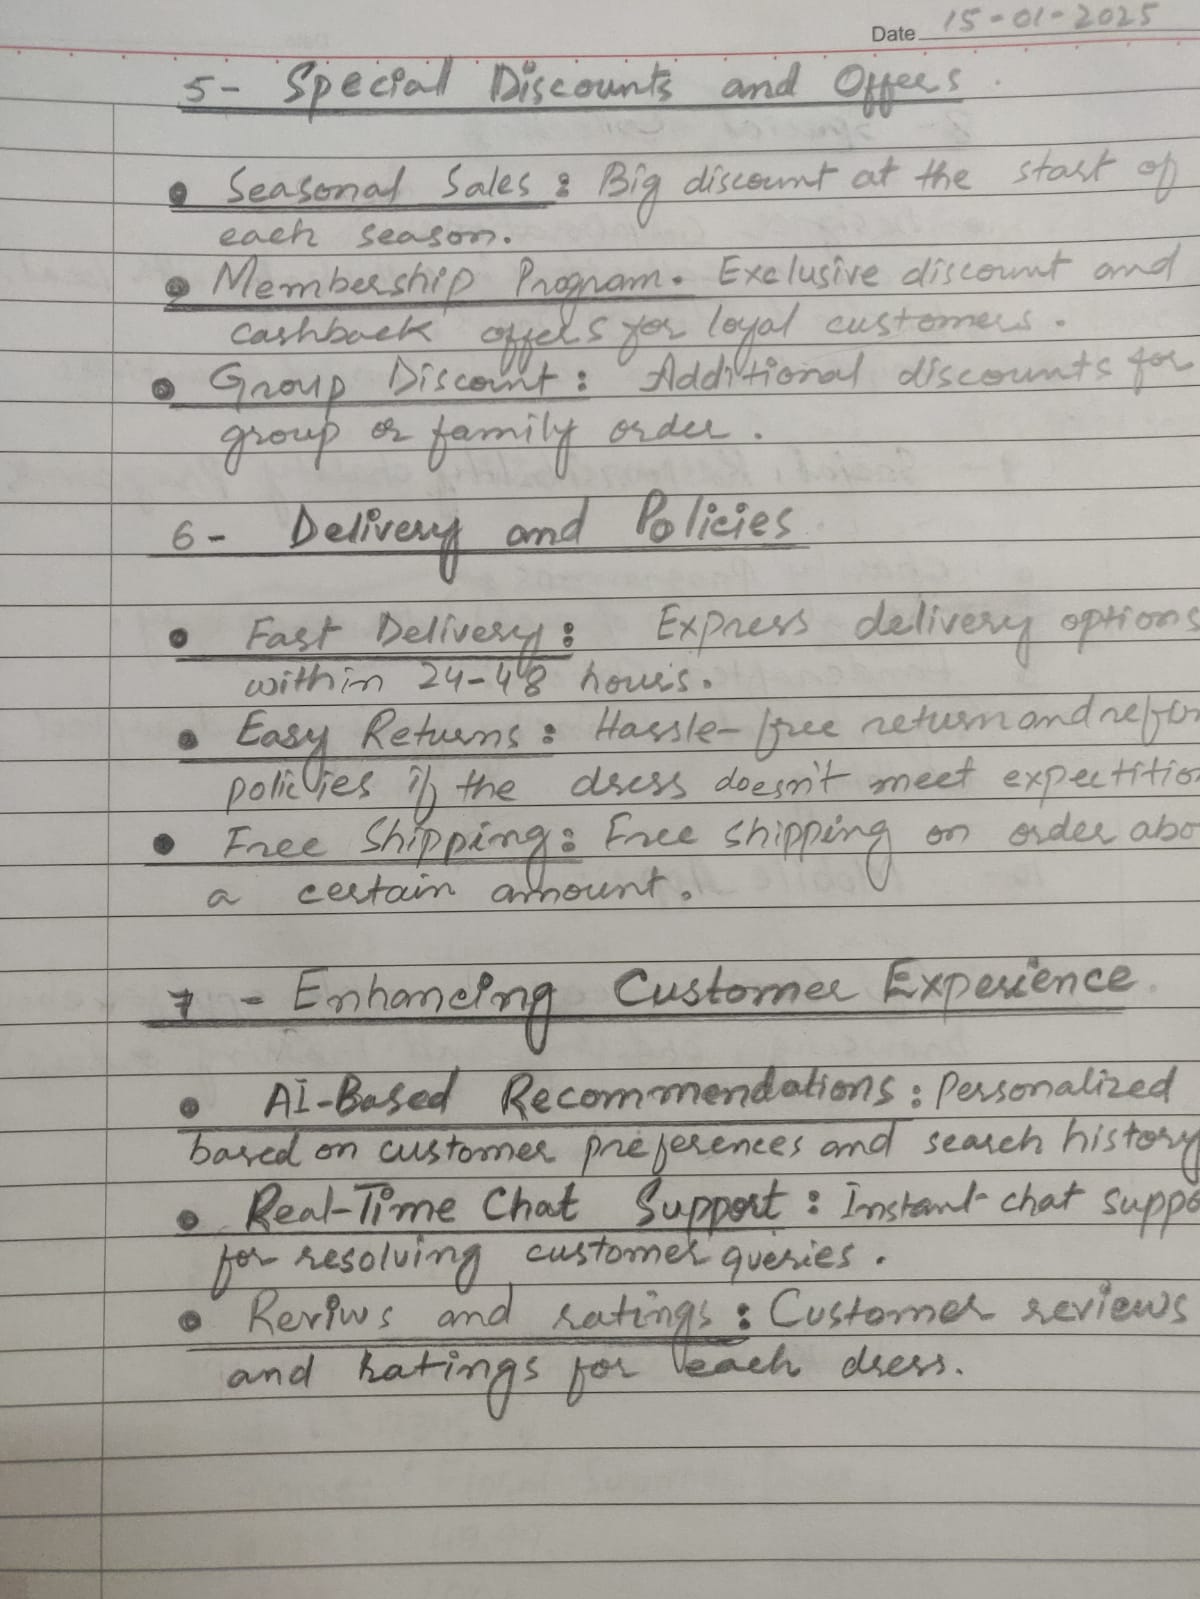 Date 15-01-2025
5- Special Discounts and Offers.
• Seasonal Sales: Big discount at the start of
each season.
• Membership Program. Exclusive discount and
cashback offers for loyal customers.
• Group Discount: Additional discounts for
group or family order.
6- Delivery and Policies
• Fast Delivery: Express delivery options
within 24-48 hours.
• Easy Returns: Hassle-free return and refun
policies if the dress doesn't meet expectitio
• Free Shipping: Free shipping on order abo
a certain amount.
7- Enhancing Customer Experience.
• AI-Based Recommendations: Personalized
based on customer preferences and search history
• Real-Time Chat Support: Instant chat suppo
for resolving customer queries.
• Reviws and ratings: Customer reviews
and ratings for each dress.